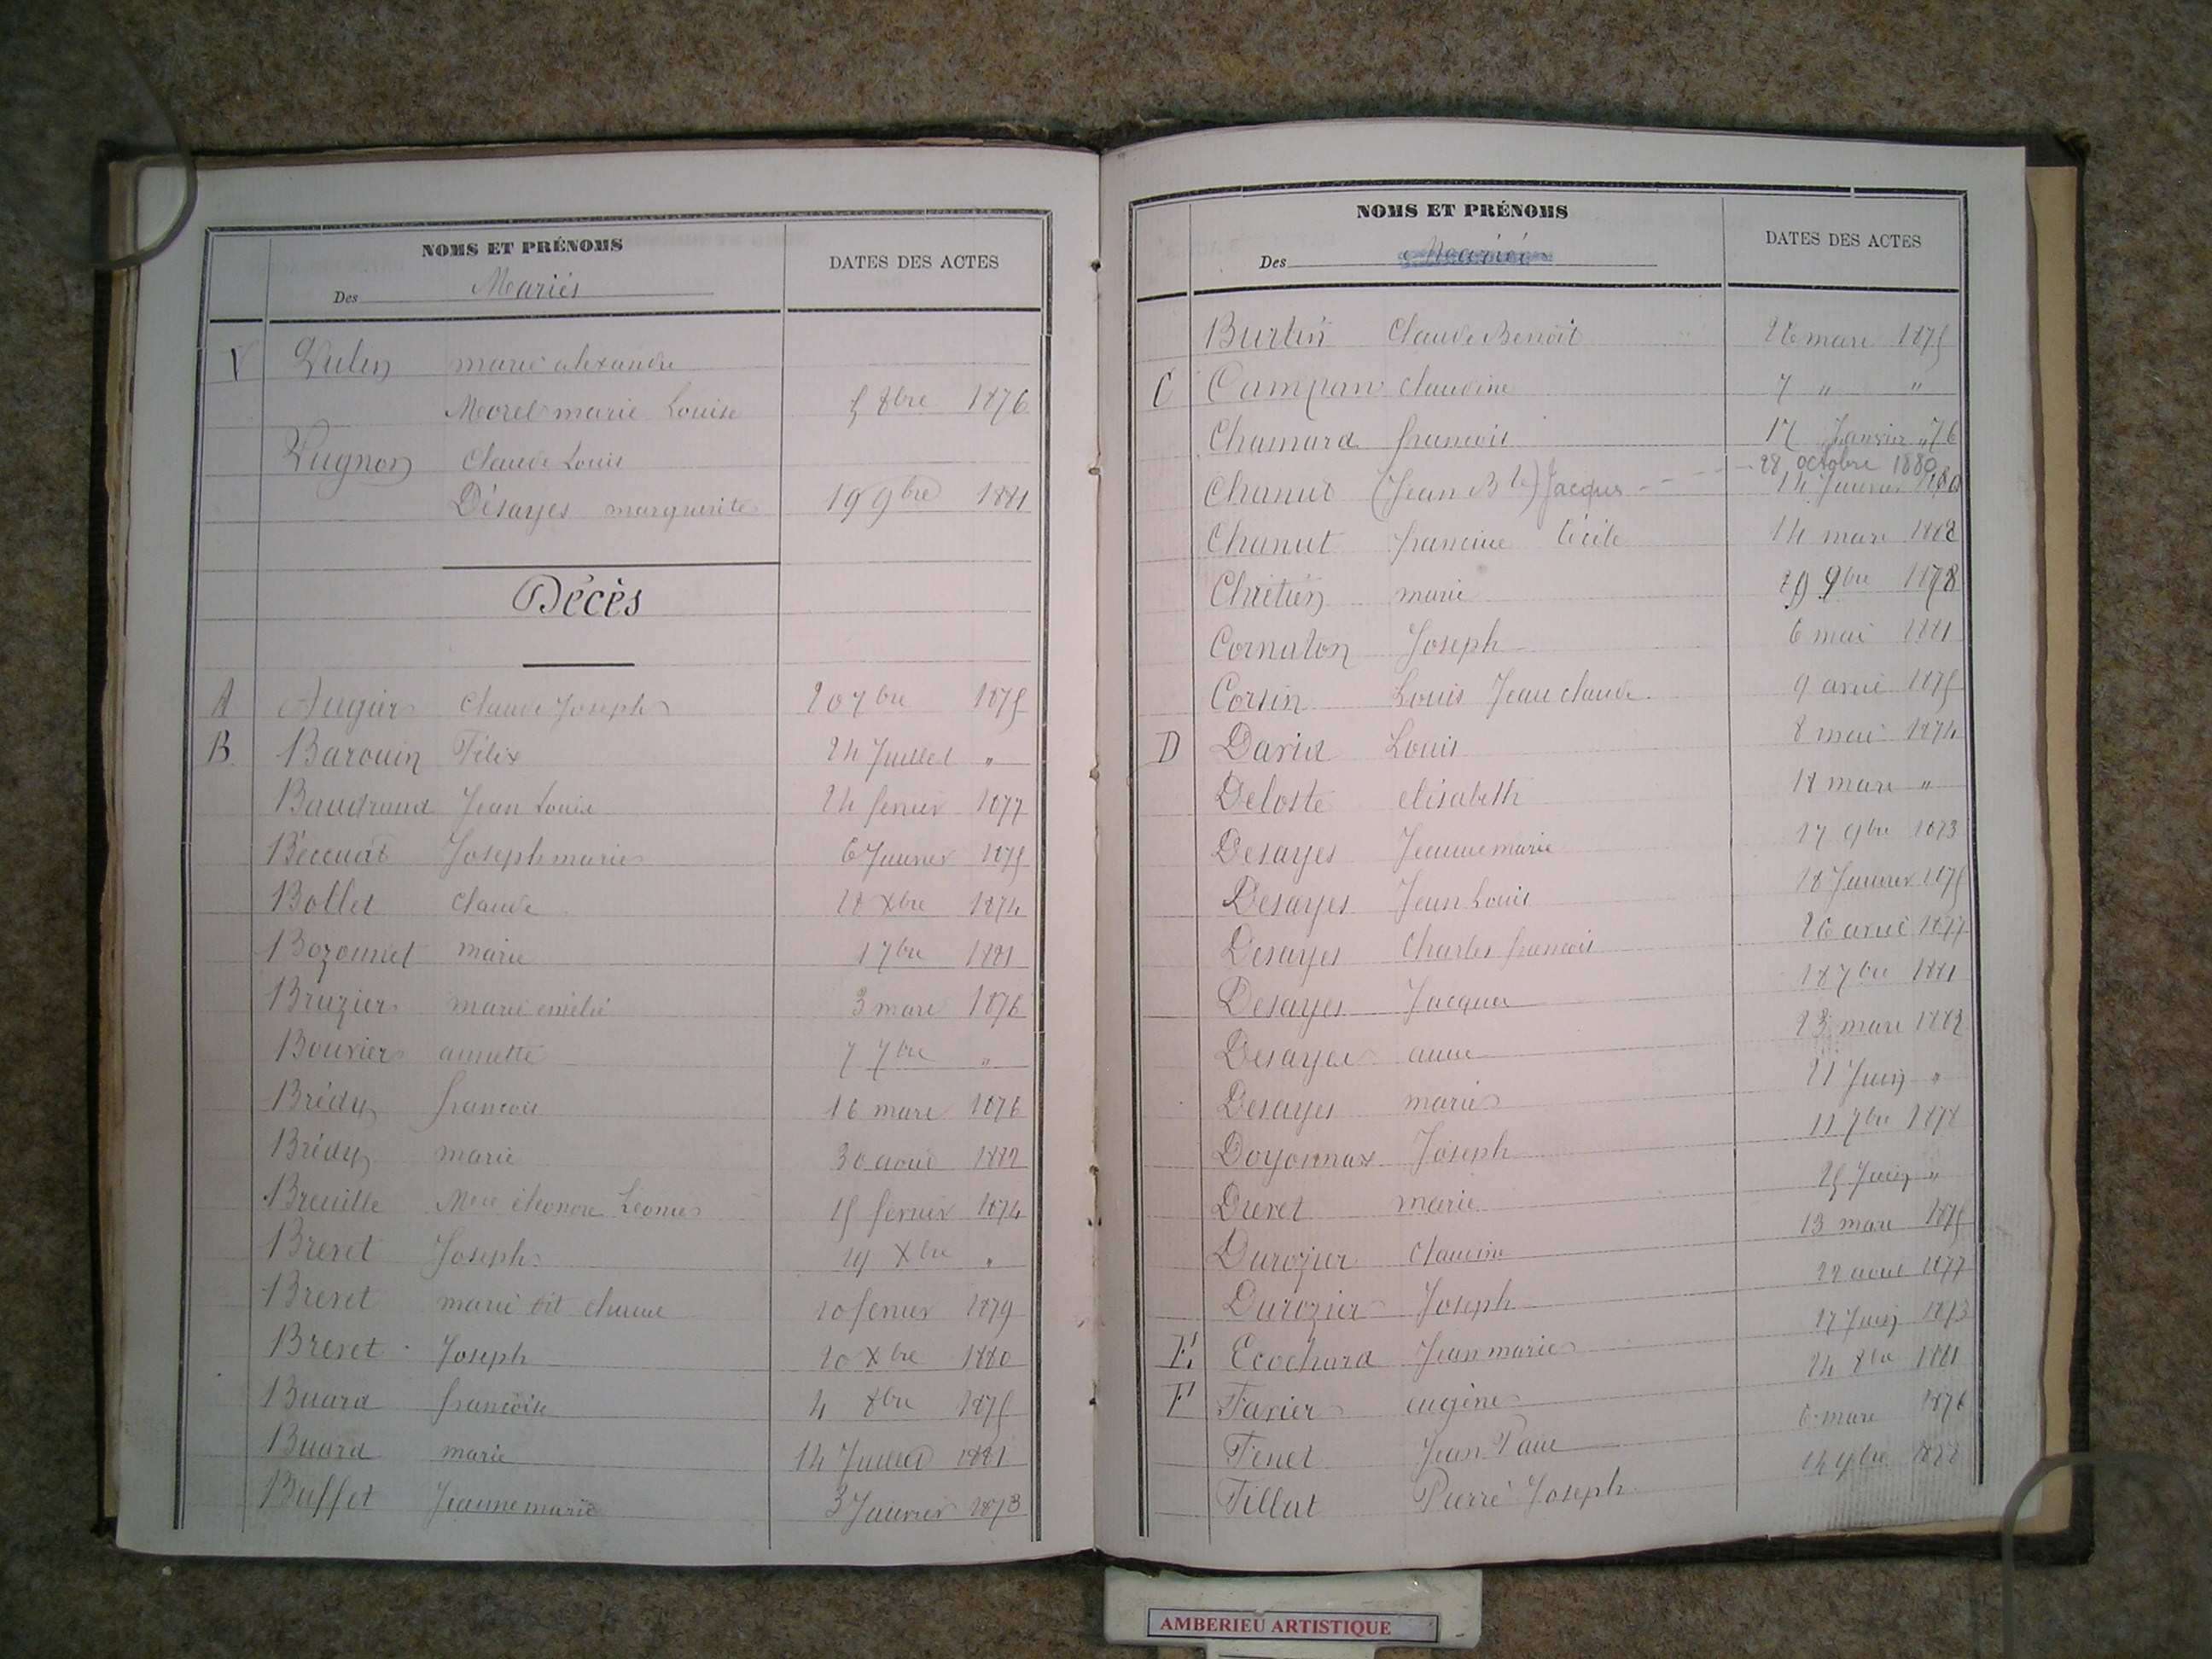 NOMS ET PRÉNOMS
Des Mariés
DATES DES ACTES
V Vulin marie alexandre
Morel marie Louise 5 8bre 1876
Vugnon Claude Louis
Désayes marguerite 19 9bre 1881
Décès
A Augier Claude Joseph 20 7bre 1875
B Barouin Félix 24 Juillet "
Baudrand Jean Louis 24 fevrier 1877
Béccuat Joseph marie 6 Janvier 1875
Bollet Claude 28 Xbre 1874
Bozonnet marie 1 7bre 1881
Brazier marie emélie 3 mars 1876
Bouvier annette 7 7bre "
Brédy francois 16 mars 1876
Brédy marie 30 aout 1882
Breuille Mie éléonore Léonie 15 fevrier 1874
Brevet Joseph 19 Xbre "
Brevet marie dit 10 fevrier 1879
Brevet Joseph 20 Xbre 1880
Buard francoise 4 8bre 1875
Buard marie 14 Juillet 1881
Buffet Jeanne marie 3 Janvier 1873
NOMS ET PRÉNOMS
Des Mariés
DATES DES ACTES
Burtin Claude Benoit 26 mars 1875
C Campan Claudine 7 " "
Chamard francois 17 Janvier "76
28 octobre 1880
Chanut (Jean Bte) Jacques 14 Janvier 1880
Chanut francine Cécile 14 mars 1882
Chrétien marie 29 9bre 1878
Cornaton Joseph 6 mai 1881
Corsin Louis Jean claude 9 avril 1875
D David Louis 8 mai 1874
Deloste elisabeth 18 mars "
Desayes Jeanne marie 17 9bre 1873
Desayes Jean Louis 18 Janvier 1875
Desayes Charles francois 26 avril 1877
Desayes Jacques 18 7bre 1881
Desayes anne 23 mars 1882
Desayes marie 21 Juin "
Doyonnax Joseph 11 7bre 1878
Drevet marie 25 Juin "
Durozier Claudine 13 mars 1875
Durozier Joseph 22 aout 1877
E Ecochard Jean marie 17 Juin 1873
F Favier eugène 24 8bre 1881
Finet Jean Paul 6 mars 1876
Fillat Pierre Joseph 14 9bre 1882
AMBERIEU ARTISTIQUE